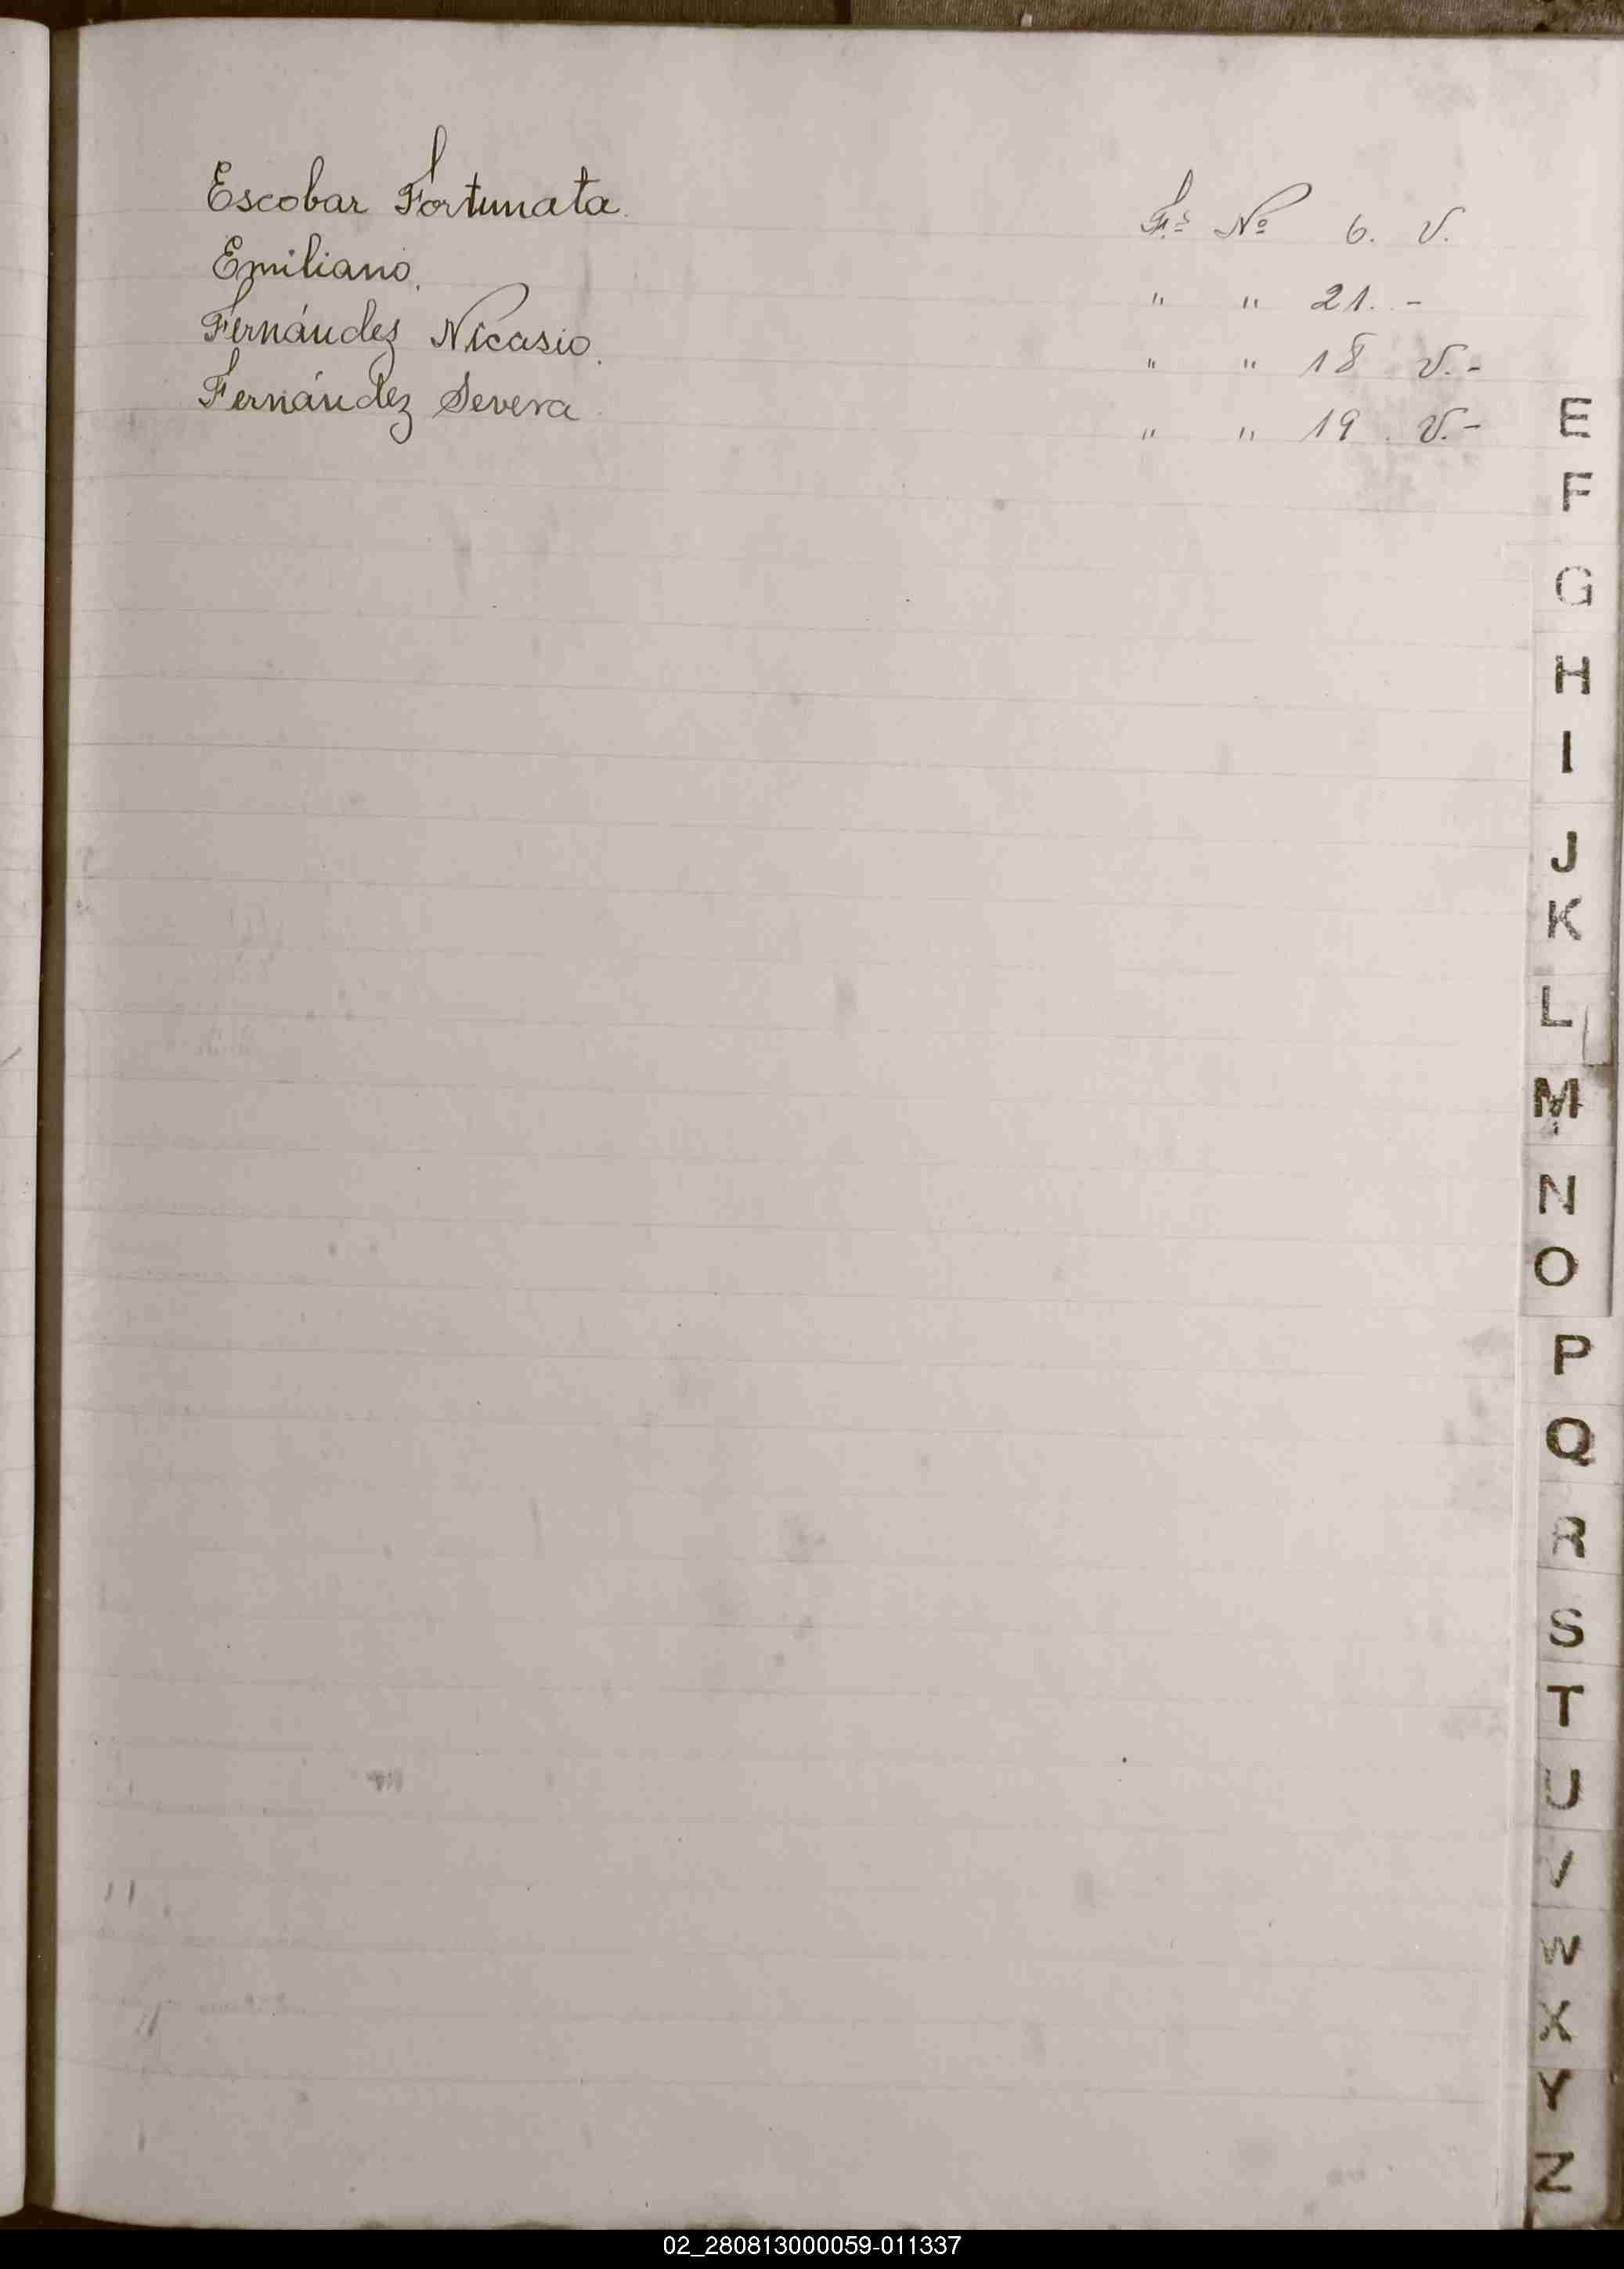 Escobar Fortunata. Fº Nº 6. V.
Emiliano. " " 21. -
Fernández Nicasio. " " 18 V. -
Fernández Severa. " " 19. V. -
E
F
G
H
I
J
K
L
M
N
O
P
Q
R
S
T
U
V
W
X
Y
Z
02_280813000059-011337